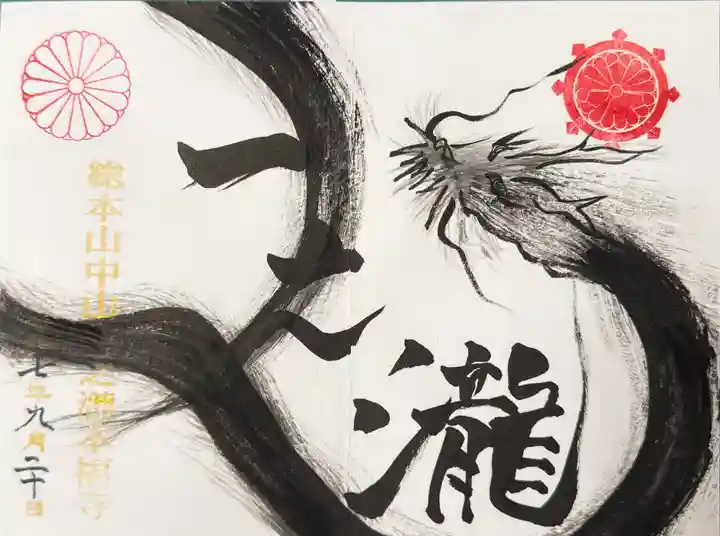 一之瀧
総本山中山 之瀧本福寺
七年九月二十日